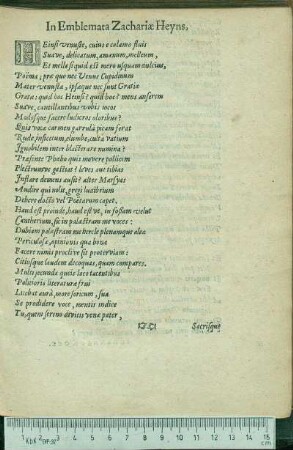 In Emblemata Zachariæ Heyns,
HEinsi venuste, cuius e calamo fluit
Suave, delicatum, amœnum, molleum,
Et melle si quid est mero usquam mulcius,
Poëma; præ quo nec Venus Cupidinum
Mater venusta, ipsæque nec sunt Gratiæ
Gratæ: quid hoc Heinsi? quid hoc? mene anserem
Suave, cantillantibus vobis iocos
Musesque facere ludicros oloribus?
Quis voca carmen parvula picam serat
Rude, infacetum, clumbe, cuta vatium
Ignobilem inter blacterare numina?
Præsente Phœbo quis movere pollicem
Plectrumve gestiat? leves aut tibias
Inflare demens ausit? alter Marsyas
Audire qui volet, gregi ludibrium
Debere docto vel Poëtarum caput.
Haud est proinde, haud est ut, in fossam velut
Cantherium, sic in palæstram me voces:
Dubiam palæstram mehercle plenamque alea
Periculosæ, opinionis qua bona
Facere nimis proclive sit protervium:
Citiusque laudem decoquas, quam compares.
Multi secunda queis licet tacentibus
Politioris literaturæ frui
Lucebat aura, more soricum, sua
Se prodidere voce, mensis indice
Tu, quem sereno dives vena pater,
Sacrisque